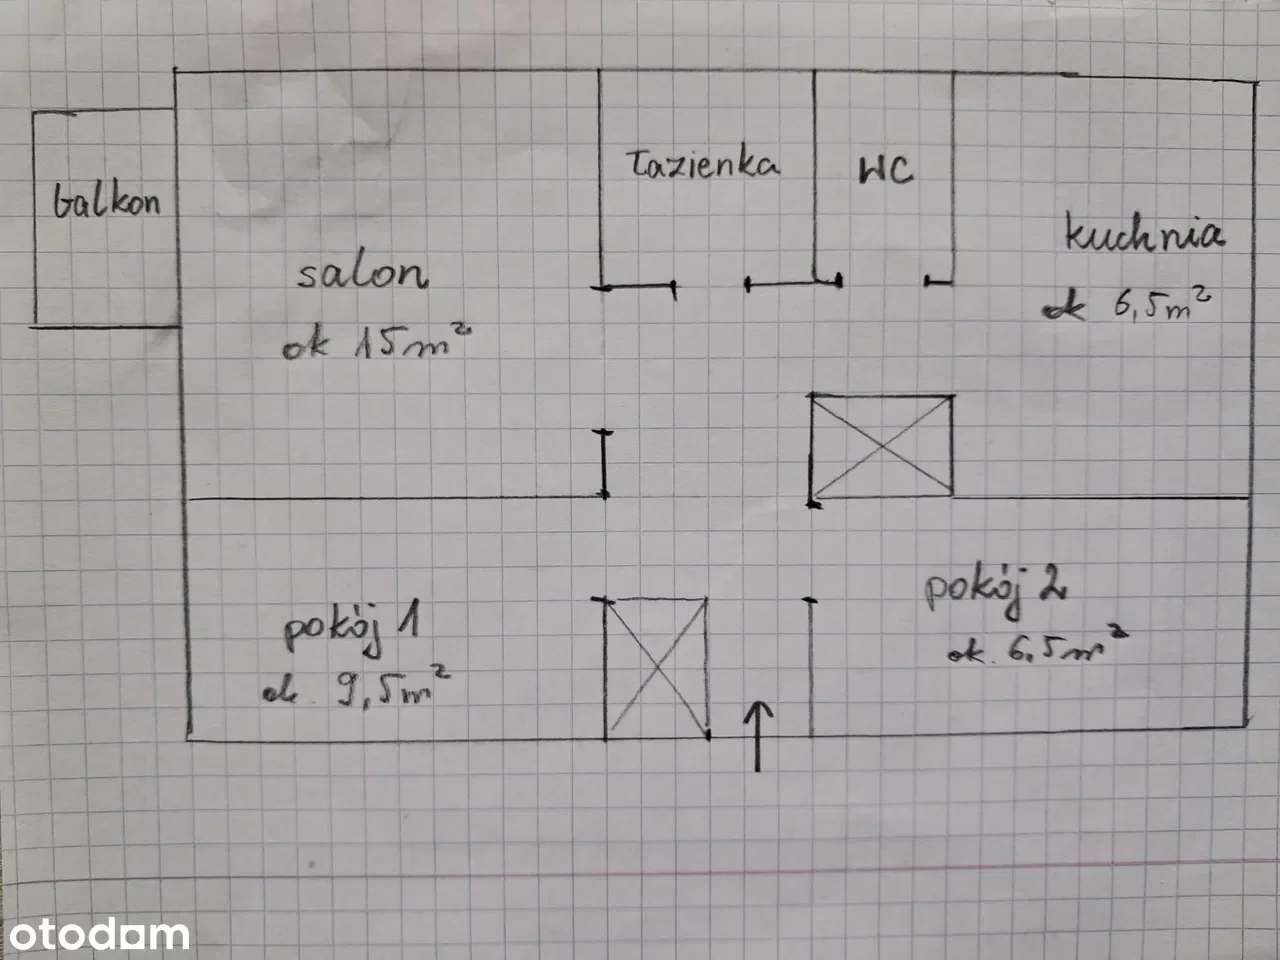 balkon
salon
ok 15m²
Łazienka
WC
kuchnia
ok 6,5m²
pokój 1
ok. 9,5m²
pokój 2
ok. 6,5m²
otodom